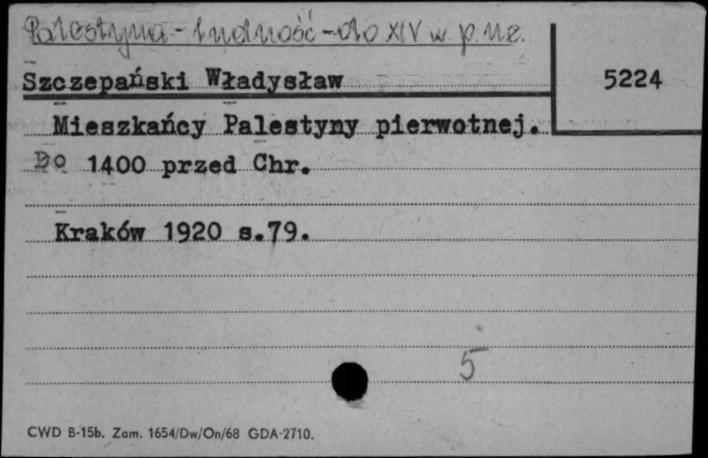 Palestyna - ludność - do XIV w p.n.e.
Szczepański Władysław
5224
Mieszkańcy Palestyny pierwotnej.
Do 1400 przed Chr.
Kraków 1920 s.79.
5
CWD B-15b. Zam. 1654/Dw/On/68 GDA-2710.